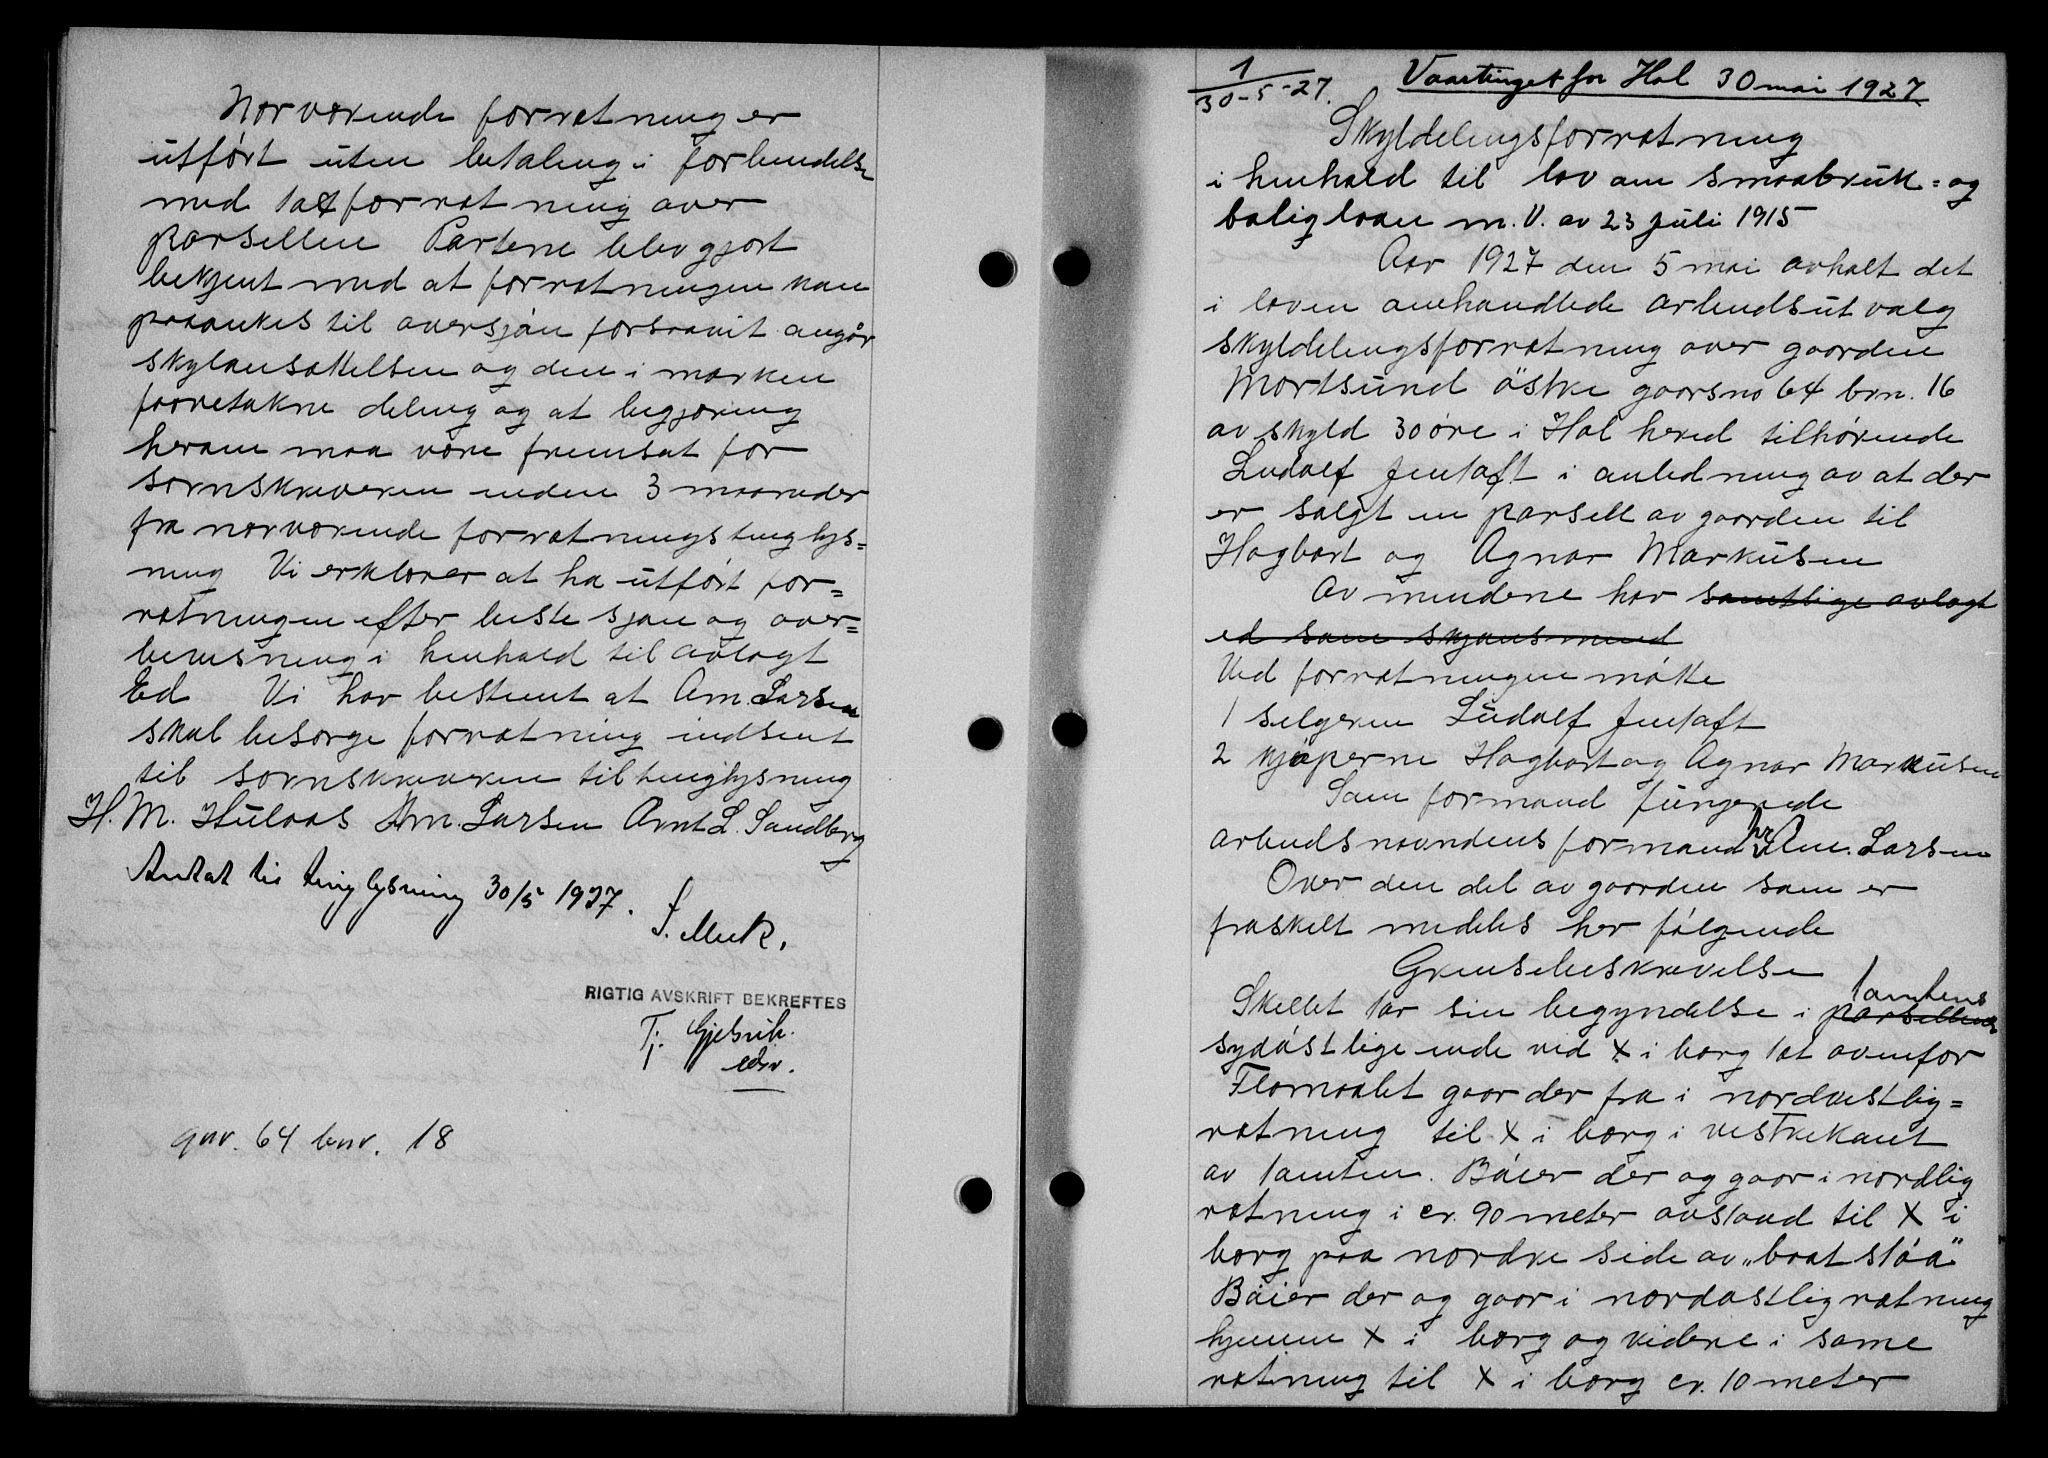 Nærværende forretning er
utført uten betaling i forbindelse
med taxtforretning over
parsellen Partene blev gjort
bekjent med at forretningen kan
paaankes til overskjøn forsaavit angår
skylansættelsen og den i marken
fooretakne deling og at begjæring
herom maa være fremsat for
sornskriveren inden 3 maaneder
fra nærværende forretnings tinglys=
ning Vi erklærer at ha utført for=
retningen efter beste skjøn og over=
bevisning i henhold til avlagt
Ed Vi har bestemt at Am. Larsen
skal besørge forretning indsent
til sornskriveren til tinglysning
H. M. Hulaas Am. Larsen Arnt L. Sandberg
Antat til tinglysning 30/5 1927.
RIGTIG AVSKRIFT BEKREFTES
T. Gjelsvik
edsv.
gnr. 64 bnr. 18
1/30-5-27. Vaartinget for Hol 30 mai 1927.
Skyldelingsforretning
i henhold til lov om smaabruk= og
boliglaan m. V. av 23 juli 1915
Aar 1927 den 5 mai avholt det
i loven omhandlede arbeidsutvalg
skyldelingsforretning over gaarden
Mortsund östre gaarsno 64 brn. 16
av skyld 30 øre i Hol hered tilhørende
Ludolf Jentoft i anledning av at der
er solgt en parsell av gaarden til
Hagbart og Agnar Markusen
Av mendene har samtlige avlagt
ed som skjønsmend
Ved forretningen møtte
1 selgeren Ludolf Jentoft
2 kjøperne Hagbart og Agnar Markusen
Som formand fungerede
arbeidsnevndens formand hr Am. Larsen
Over den del av gaarden som er
fraskelt meddeles her følgende
Grensebeskrivelse
Skellet tar sin begyndelse i parsellens tomtens
sydøstlige ende ved X i berg tæt ovenfor
Flomaalet gaar der fra i nordvestlig=
retning til X i berg i vestre kant
av tomten. Bøier der og gaar i nordlig
retning i cr. 90 meter avstand til X i
berg paa nordre side av „baatstøa"
Bøier der og gaar i nordøstlig retning
hjennem X i berg og videre i same
retning til X i berg cr. 10 meter